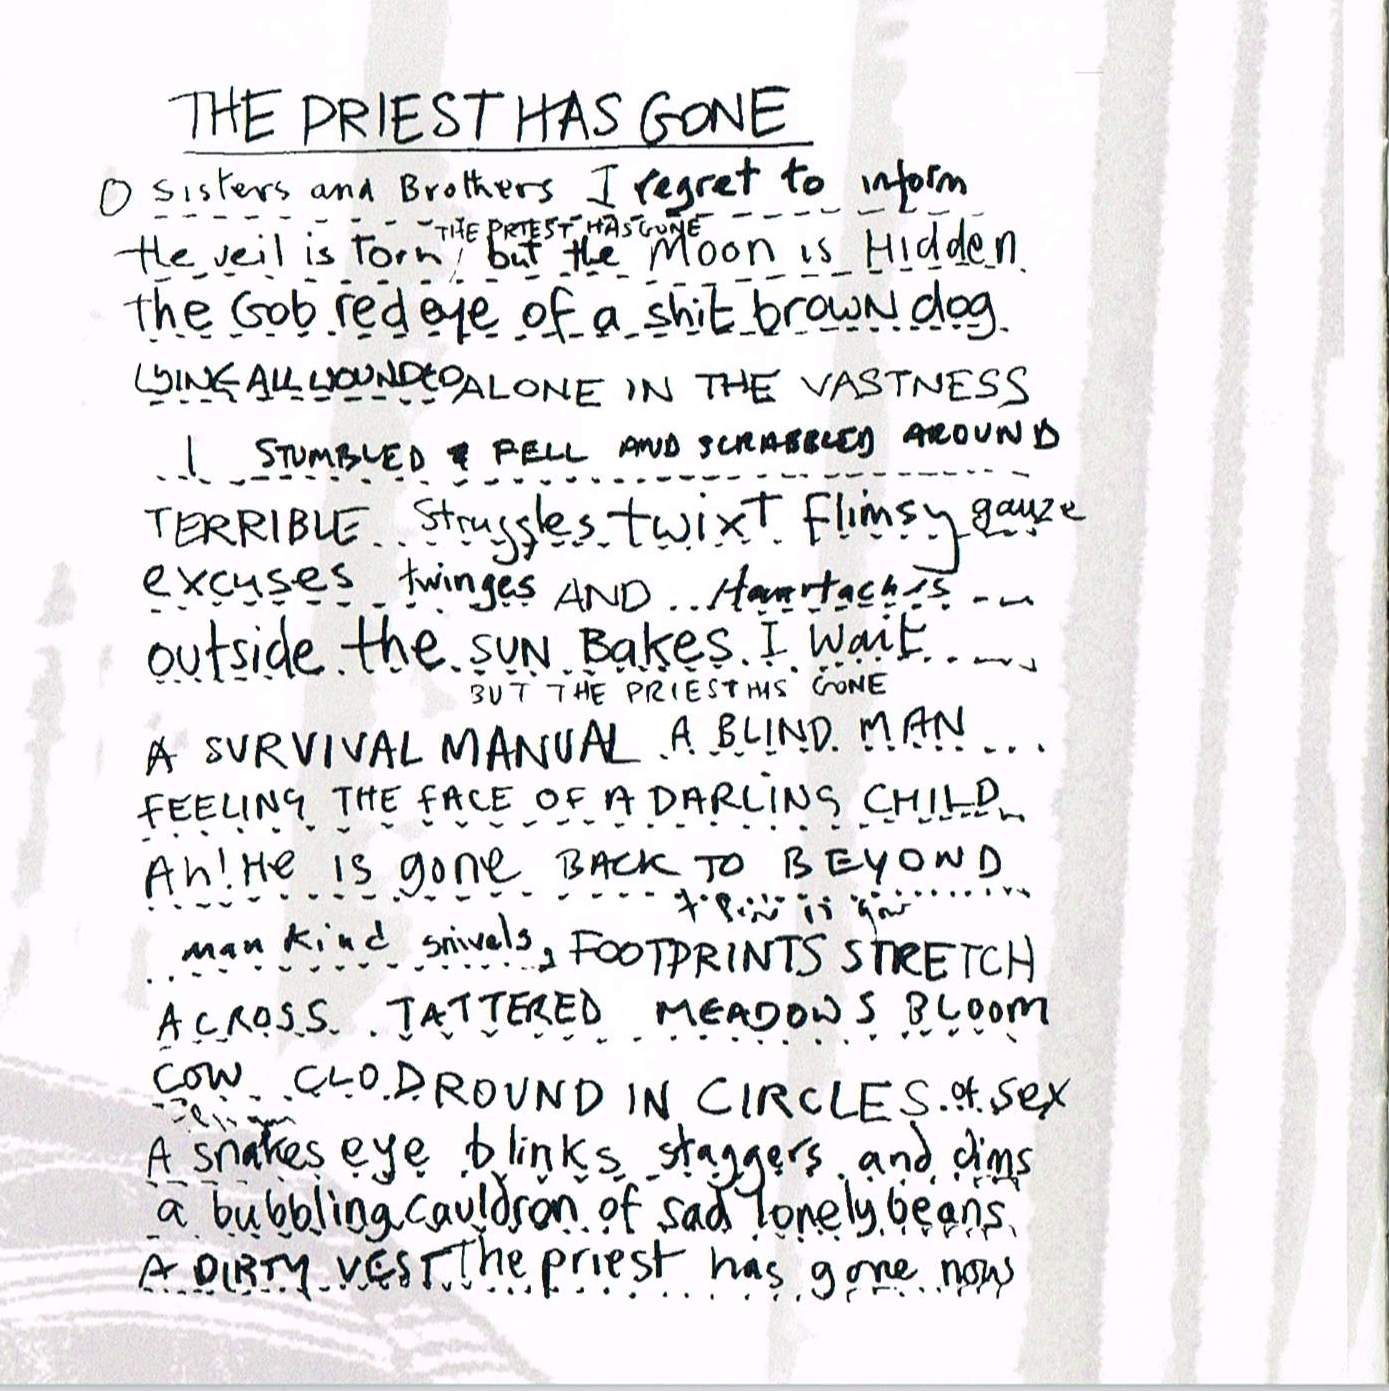 THE PRIEST HAS GONE
O Sisters and Brothers I regret to inform
THE PRIEST HAS GONE
the veil is Torn, but the Moon is Hidden
the Gob red eye of a shit brown dog
LYING ALL WOUNDED ALONE IN THE VASTNESS
I STUMBLED & FELL AND SCRABBLED AROUND
TERRIBLE Struggles twixT flimsy gauze
excuses twinges AND
outside the SUN Bakes I Wait
BUT THE PRIEST HAS GONE
A SURVIVAL MANUAL A BLIND MAN
FEELING THE FACE OF A DARLING CHILD
Ah! He is gone BACK TO BEYOND
man kind snivels, FOOTPRINTS STRETCH
ACROSS TATTERED MEADOWS BLOOM
COW CLOD ROUND IN CIRCLES of sex
A snakes eye blinks staggers and dims
a bubbling cauldron of sad lonely beans
A DIRTY VEST The priest has gone now